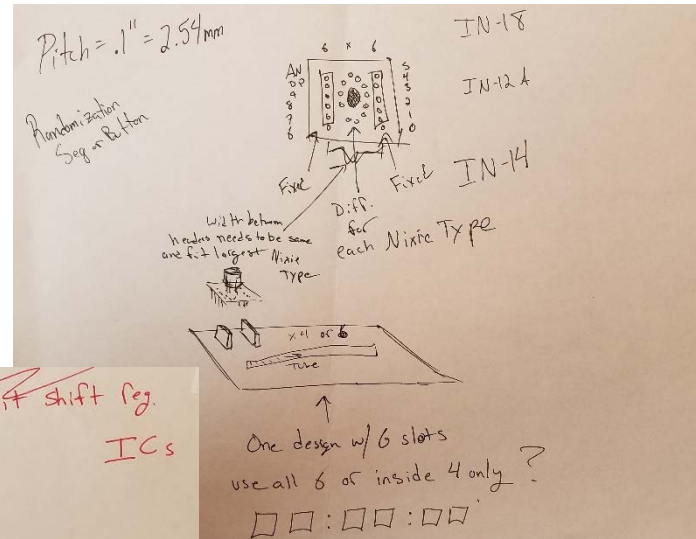 Pitch = .1" = 2.54mm
Randomization
Seq or Button
6 x 6
AN
DP
9
8
7
6
5
4
3
2
1
0
IN-18
IN-12A
IN-14
Fixed
Fixed
Diff.
for
each Nixie Type
width between
headers needs to be same
and fit largest Nixie
Type
x4 or 6
Tube
it shift reg.
ICs
One design w/ 6 slots
use all 6 or inside 4 only ?